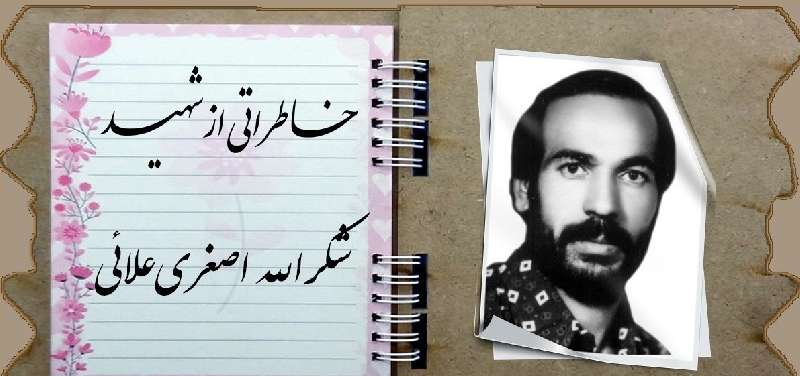 خاطراتی از شهید
شکرالله اصغری علائی